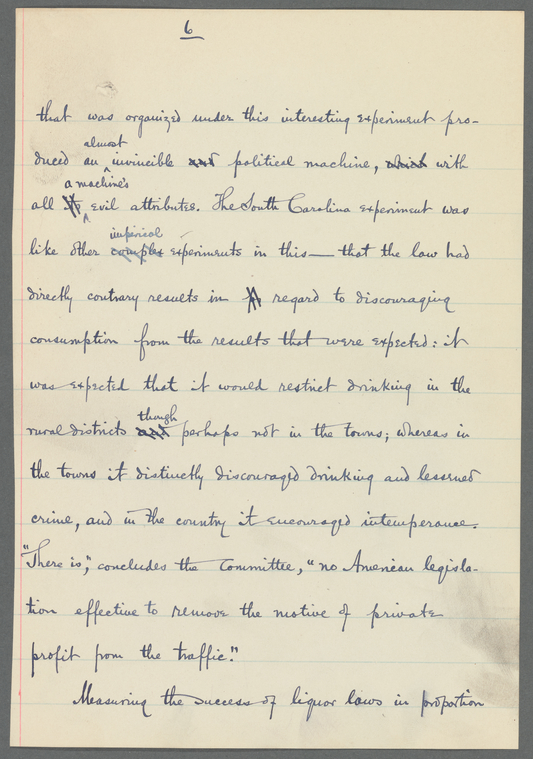 6
that was organized under this interesting experiment pro-
almost
duced an invincible and political machine, which with
a machine's
all its evil attributes. The South Carolina experiment was
imperical
like other complex experiments in this — that the law had
directly contrary results in regard to discouraging
consumption from the results that were expected: it
was expected that it would restrict drinking in the
though
rural districts perhaps not in the towns; whereas in
the towns it distinctly discouraged drinking and lessened
crime, and in the country it encouraged intemperance.
"There is," concludes the Committee, "no American legisla-
tion effective to remove the motive of private
profit from the traffic."
Measuring the success of liquor laws in proportion